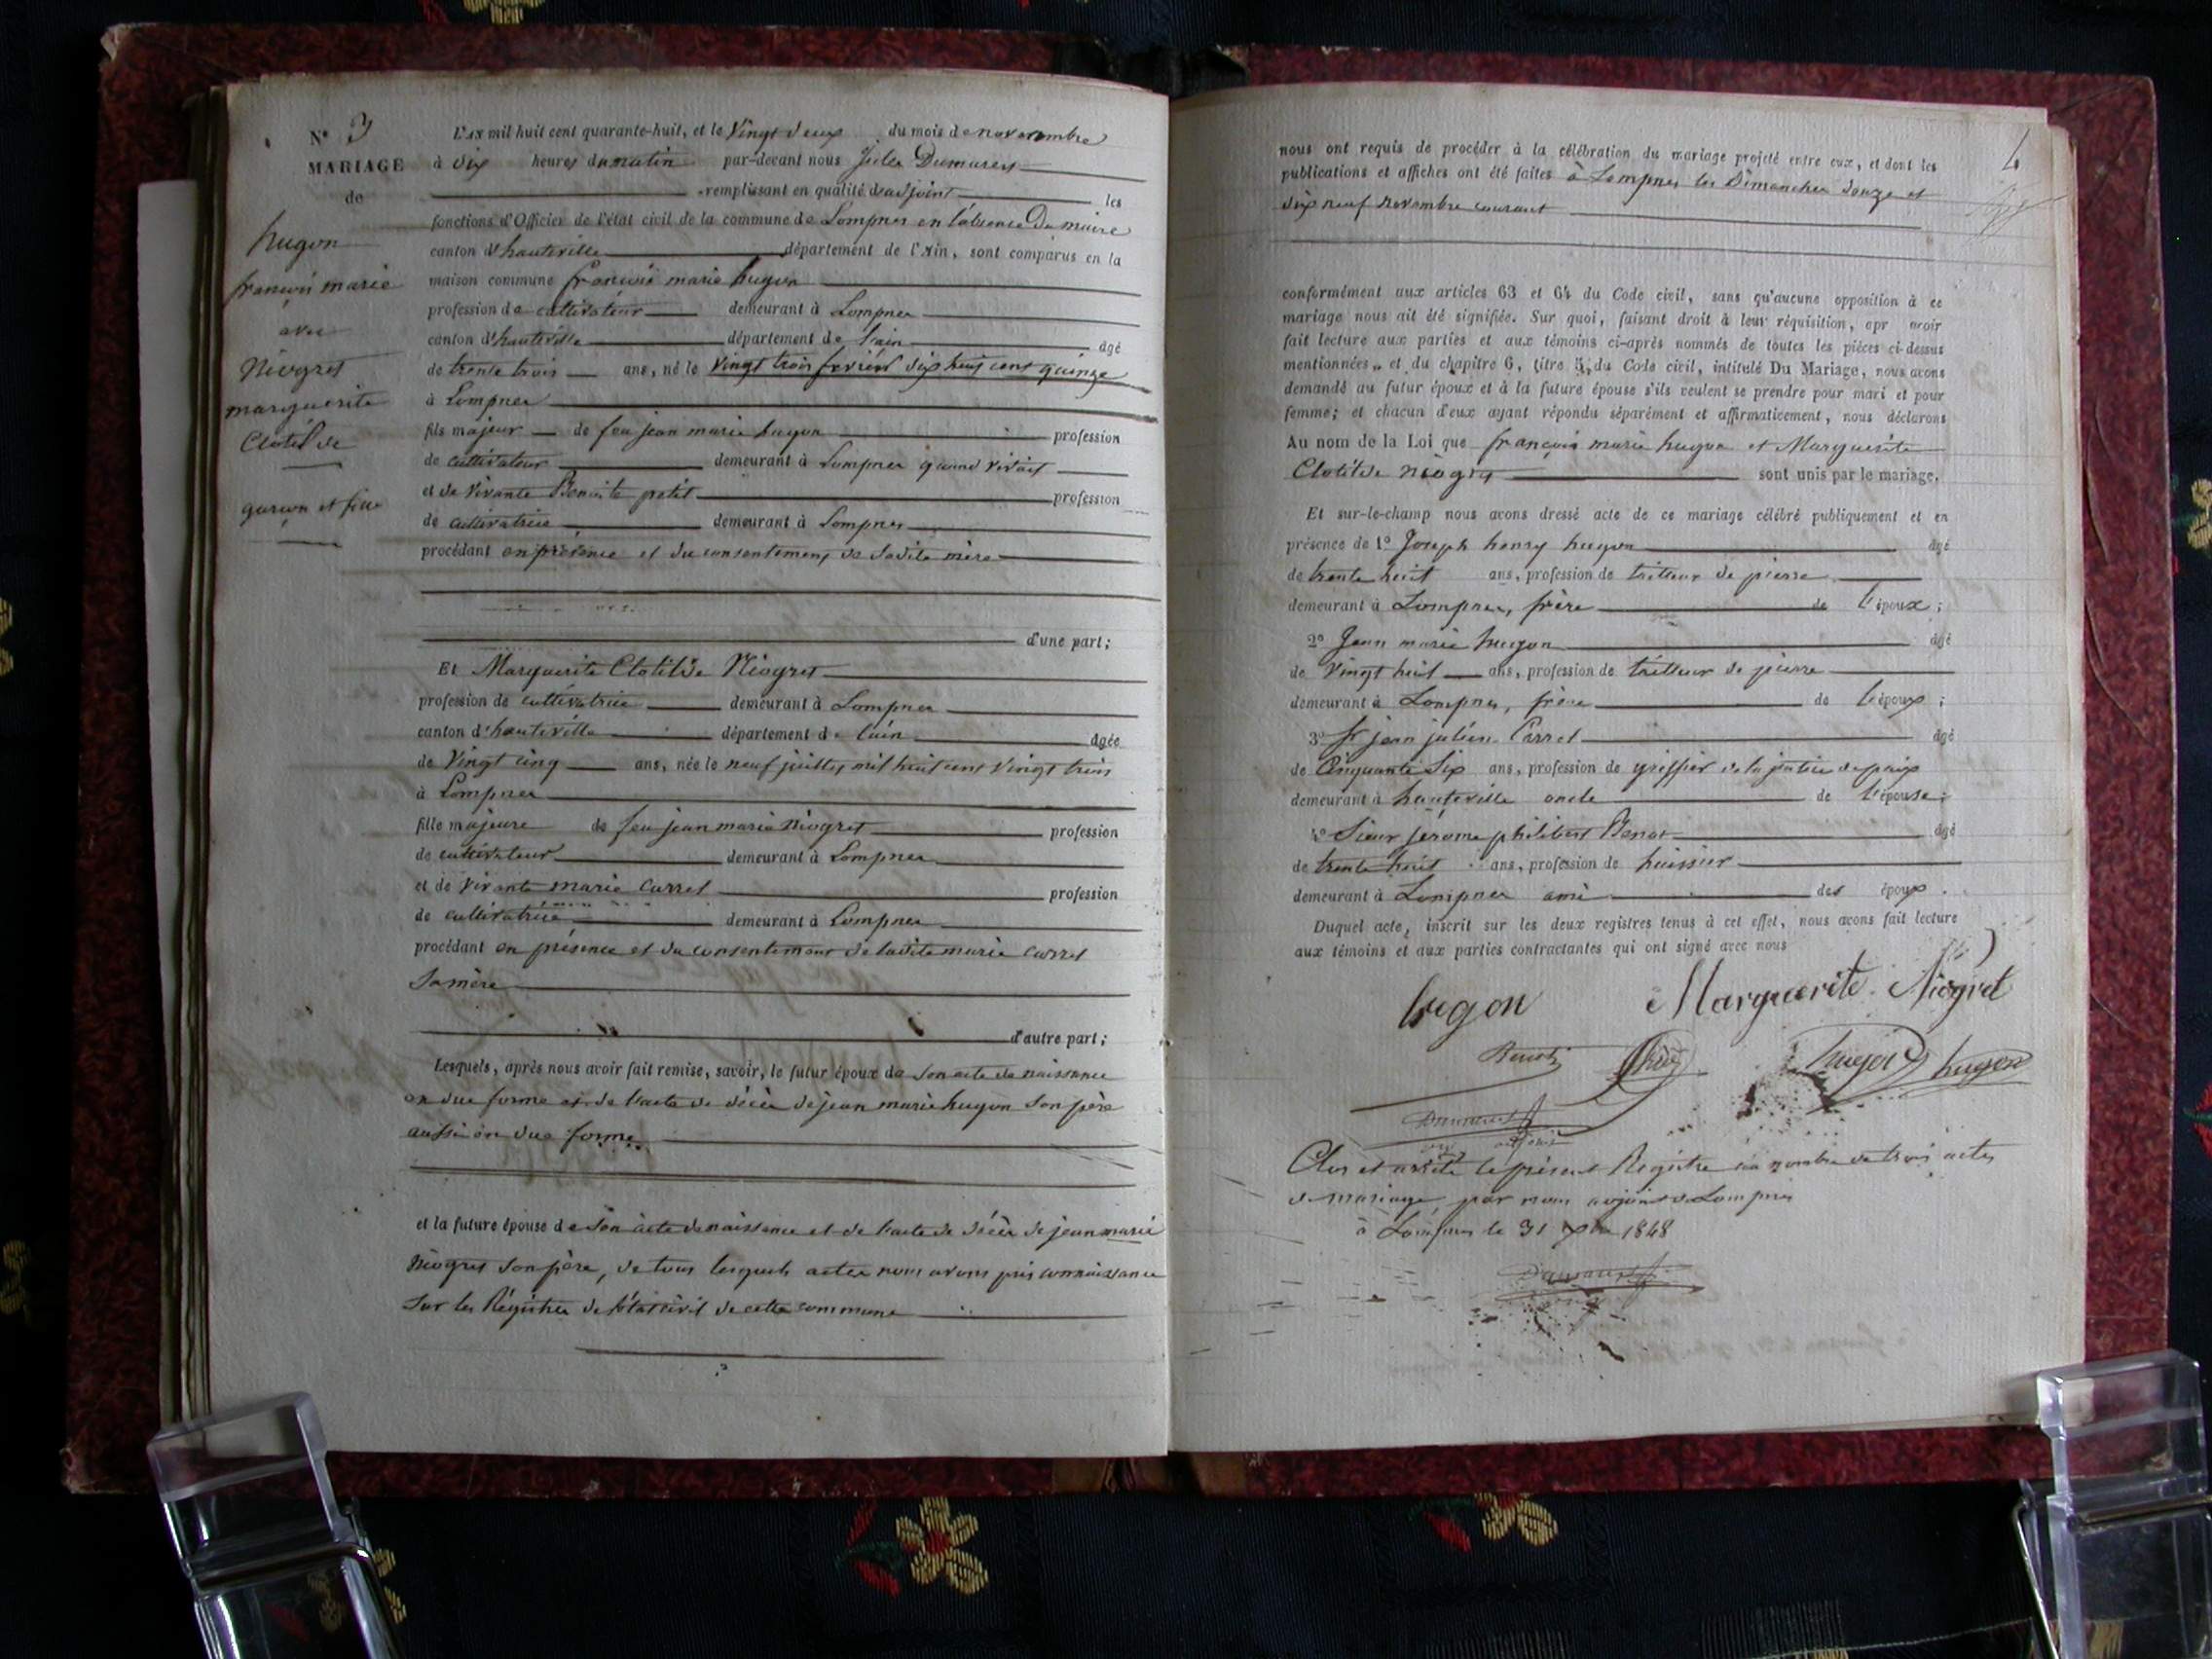 N° 3
MARIAGE
de
hugon
françois marie
avec
Niogret
marguerite
Clotilde
garçon et fille
L'AN mil huit cent quarante-huit, et le Vingt deux du mois de novembre
à dix heures du matin par-devant nous Jules Dumarest
remplissant en qualité d'adjoint les
fonctions d'Officier de l'état civil de la commune de Lompnes en l'absence Du maire
canton d'hauteville département de l'Ain, sont comparus en la
maison commune françois marie hugon
profession de cultivateur demeurant à Lompnes
canton d'hauteville département de l'ain âgé
de trente trois ans, né le vingt trois février dix huit cent quinze
à Lompnes
fils majeur de feu jean marie hugon profession
de cultivateur demeurant à Lompnes quand vivait
et de vivante Benoite petit profession
de cultivatrice demeurant à Lompnes
procédant en présence et du consentement de sadite mère
d'une part;
Et Marguerite Clotilde Niogret
profession de cultivatrice demeurant à Lompnes
canton d'hauteville département de l'ain âgée
de Vingt cinq ans, née le neuf juillet mil huit cent vingt trois
à Lompnes
fille majeure de feu jean marie Niogret profession
de cultivateur demeurant à Lompnes
et de vivante marie Carrel profession
de cultivatrice demeurant à Lompnes
procédant en présence et du consentement de ladite marie Carrel
Sa mère
d'autre part;
Lesquels, après nous avoir fait remise, savoir, le futur époux de son acte de naissance
en due forme et de l'acte de décès de jean marie hugon son père
aussi en due forme
et la future épouse de son acte de naissance et de l'acte de décès de jean marie
Niogret son père, de tous lesquels actes nous avons pris connaissance
sur les Régistres de l'état civil de cette commune
4
nous ont requis de procéder à la célébration du mariage projeté entre eux, et dont les
publications et affiches ont été faites à Lompnes les Dimanches douze et
dix neuf novembre courant
conformément aux articles 63 et 64 du Code civil, sans qu'aucune opposition à ce
mariage nous ait été signifiée. Sur quoi, faisant droit à leur réquisition, apr avoir
fait lecture aux parties et aux témoins ci-après nommés de toutes les pièces ci-dessus
mentionnées, et du chapitre 6, titre 5, du Code civil, intitulé Du Mariage, nous avons
demandé au futur époux et à la future épouse s'ils veulent se prendre pour mari et pour
femme; et chacun d'eux ayant répondu séparément et affirmativement, nous déclarons
Au nom de la Loi que françois marie hugon et Marguerite
Clotilde Niogret sont unis par le mariage.
Et sur-le-champ nous avons dressé acte de ce mariage célébré publiquement et en
présence de 1° Joseph henry hugon âgé
de trente huit ans, profession de tailleur de pierre
demeurant à Lompnes, frère de l'époux;
2° Jean marie hugon âgé
de vingt huit ans, profession de tailleur de pierre
demeurant à Lompnes, frère de l'époux;
3° Sr jean julien Carrel âgé
de Cinquante Six ans, profession de greffier de la justice de paix
demeurant à hauteville oncle de l'épouse;
4° Sieur jérome philibert âgé
de trente huit ans, profession de huissier
demeurant à Lompnes ami des époux.
Duquel acte, inscrit sur les deux registres tenus à cet effet, nous avons fait lecture
aux témoins et aux parties contractantes qui ont signé avec nous
hugon Marguerite Niogret
hugon hugon
Dumarest
adjoint
Clos et arrêté le présent Registre au nombre de trois actes
de mariage, par nous adjoint de Lompnes
à Lompnes le 31 Xbre 1848
Dumarest